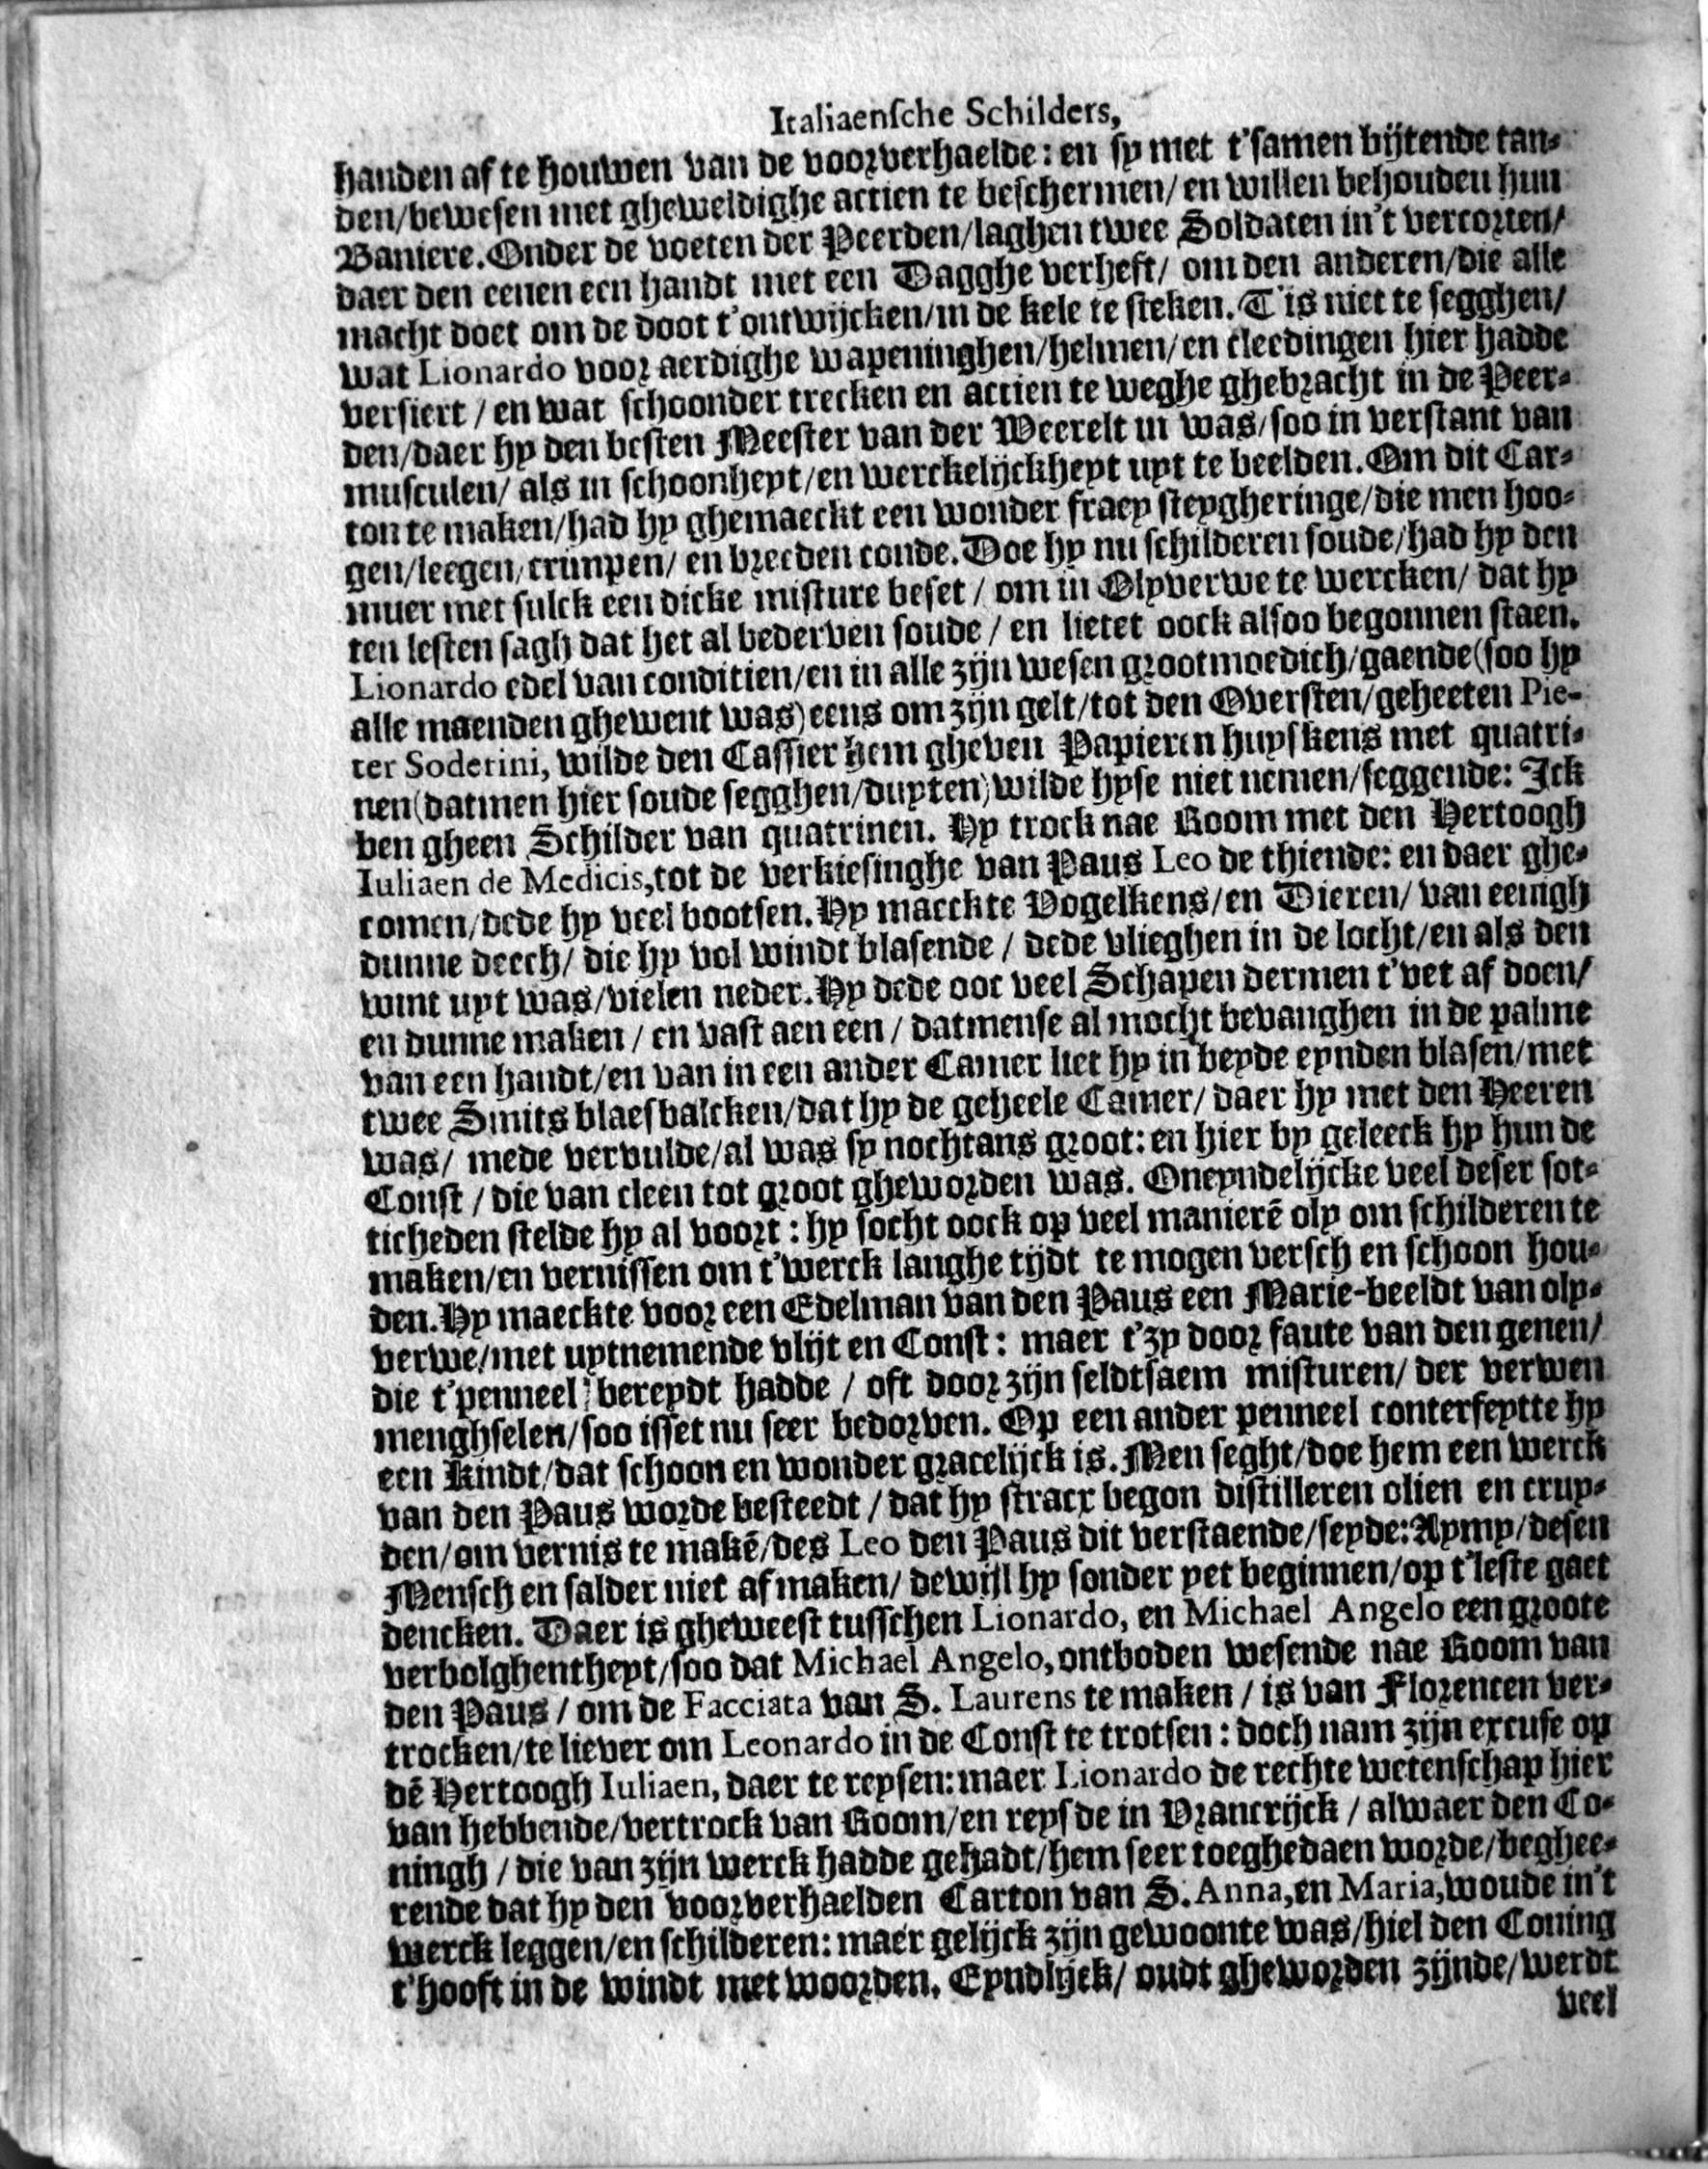 Italiaensche Schilders,
handen af te houwen van de voorverhaelde: en sy met t'samen bijtende tan-
den/bewesen met gheweldighe actien te beschermen/en willen behouden hun
Baniere. Onder de voeten der Peerden/laghen twee Soldaten in't vercorten/
daer den eenen een handt met een Dagghe verheft/ om den anderen/die alle
macht doet om de doot t'ontwijcken/in de kele te steken. T'is niet te segghen/
wat Lionardo voor aerdighe wapeninghen/helmen/en cleedingen hier hadde
versiert / en wat schoonder trecken en actien te weghe ghebracht in de Peer-
den/daer hy den besten Meester van der Weerelt in was/soo in verstant van
musculen/ als in schoonheyt/en werckelijckheyt uyt te beelden. Om dit Car-
ton te maken/had hy ghemaeckt een wonder fraey steygheringe/die men hoo-
gen/leegen/crimpen/ en breeden conde. Doe hy nu schilderen soude/had hy den
muer met sulck een dicke misture beset / om in Olyverwe te wercken/ dat hy
ten lesten sagh dat het al bederven soude / en lietet oock alsoo begonnen staen.
Lionardo edel van conditien/en in alle zijn wesen grootmoedich/gaende(soo hy
alle maenden ghewent was) eens om zijn gelt/tot den Oversten/geheeten Pie-
ter Soderini, wilde den Cassier hem gheven Papieren huyskens met quatri-
nen(datmen hier soude segghen/duyten) wilde hyse niet nemen/seggende: Ick
ben gheen Schilder van quatrinen. Hy trock nae Room met den Hertoogh
Iuliaen de Medicis, tot de verkiesinghe van Paus Leo de thiende: en daer ghe-
comen/dede hy veel bootsen. Hy maeckte Vogelkens/en Dieren/ van eenigh
dunne deech/ die hy vol windt blasende / dede vlieghen in de locht/en als den
wint uyt was/vielen neder. Hy dede ooc veel Schapen dermen t'vet af doen/
en dunne maken / en vast aen een / datmense al mocht bevanghen in de palme
van een handt/en van in een ander Camer liet hy in beyde eynden blasen/met
twee Smits blaesbalcken/dat hy de geheele Camer/ daer hy met den Heeren
was/ mede vervulde/al was sy nochtans groot: en hier by geleeck hy hun de
Const / die van cleen tot groot gheworden was. Oneyndelijcke veel deser sot-
ticheden stelde hy al voort: hy socht oock op veel manierē oly om schilderen te
maken/en vernissen om t'werck langhe tijdt te mogen versch en schoon hou-
den. Hy maeckte voor een Edelman van den Paus een Marie-beeldt van oly-
verwe/met uytnemende vlijt en Const: maer t'zy door faute van den genen/
die t'penneel bereydt hadde / oft door zijn seldtsaem misturen/ der verwen
menghselen/soo isset nu seer bedorven. Op een ander penneel conterfeytte hy
een kindt/dat schoon en wonder gracelijck is. Men seght/doe hem een werck
van den Paus worde besteedt / dat hy stracx begon distilleren olien en cruy-
den/om vernis te makē/des Leo den Paus dit verstaende/seyde: Aymy/desen
Mensch en salder niet af maken/ dewijl hy sonder yet beginnen/op t'leste gaet
dencken. Daer is gheweest tusschen Lionardo, en Michael Angelo een groote
verbolghentheyt/soo dat Michael Angelo, ontboden wesende nae Room van
den Paus / om de Facciata van S. Laurens te maken / is van Florencen ver-
trocken/te liever om Leonardo in de Const te trotsen: doch nam zijn excuse op
dē Hertoogh Iuliaen, daer te reysen: maer Lionardo de rechte wetenschap hier
van hebbende/vertrock van Room/en reysde in Vrancrijck / alwaer den Co-
ningh / die van zijn werck hadde gehadt/hem seer toeghedaen worde/beghee-
rende dat hy den voorverhaelden Carton van S. Anna, en Maria, woude in't
werck leggen/en schilderen: maer gelijck zijn gewoonte was/hiel den Coning
t'hooft in de windt met woorden. Eyndlijck/ oudt gheworden zijnde/werdt
veel